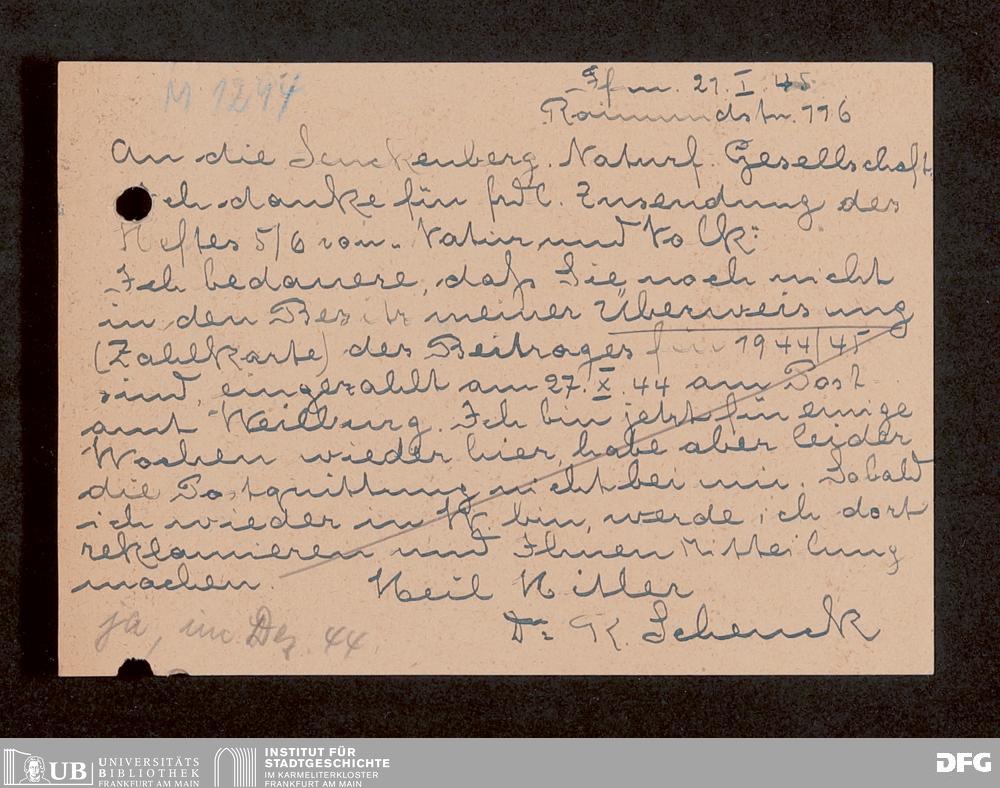 M 1244
Ffm. 21. I. 45
Raimundstr. 116
An die Senckenberg. Naturf. Gesellschaft.
Ich danke für frdl. Zusendung des
Heftes 5/6 von „Natur und Volk“
Ich bedauere, daß Sie noch nicht
in den Besitz meiner Überweisung
(Zahlkarte) des Beitrages für 1944/45
sind, eingezahlt am 27. X. 44 am Post-
amt Weilburg. Ich bin jetzt für einige
Wochen wieder hier, habe aber leider
die Postquittung nicht bei mir. Sobald
ich wieder in W. bin, werde ich dort
reklamieren und Ihnen Mitteilung
machen. Heil Hitler
Dr. K. Schenck
ja, im Dez. 44.
UB UNIVERSITÄTS
BIBLIOTHEK
FRANKFURT AM MAIN
INSTITUT FÜR
STADTGESCHICHTE
IM KARMELITERKLOSTER
FRANKFURT AM MAIN
DFG